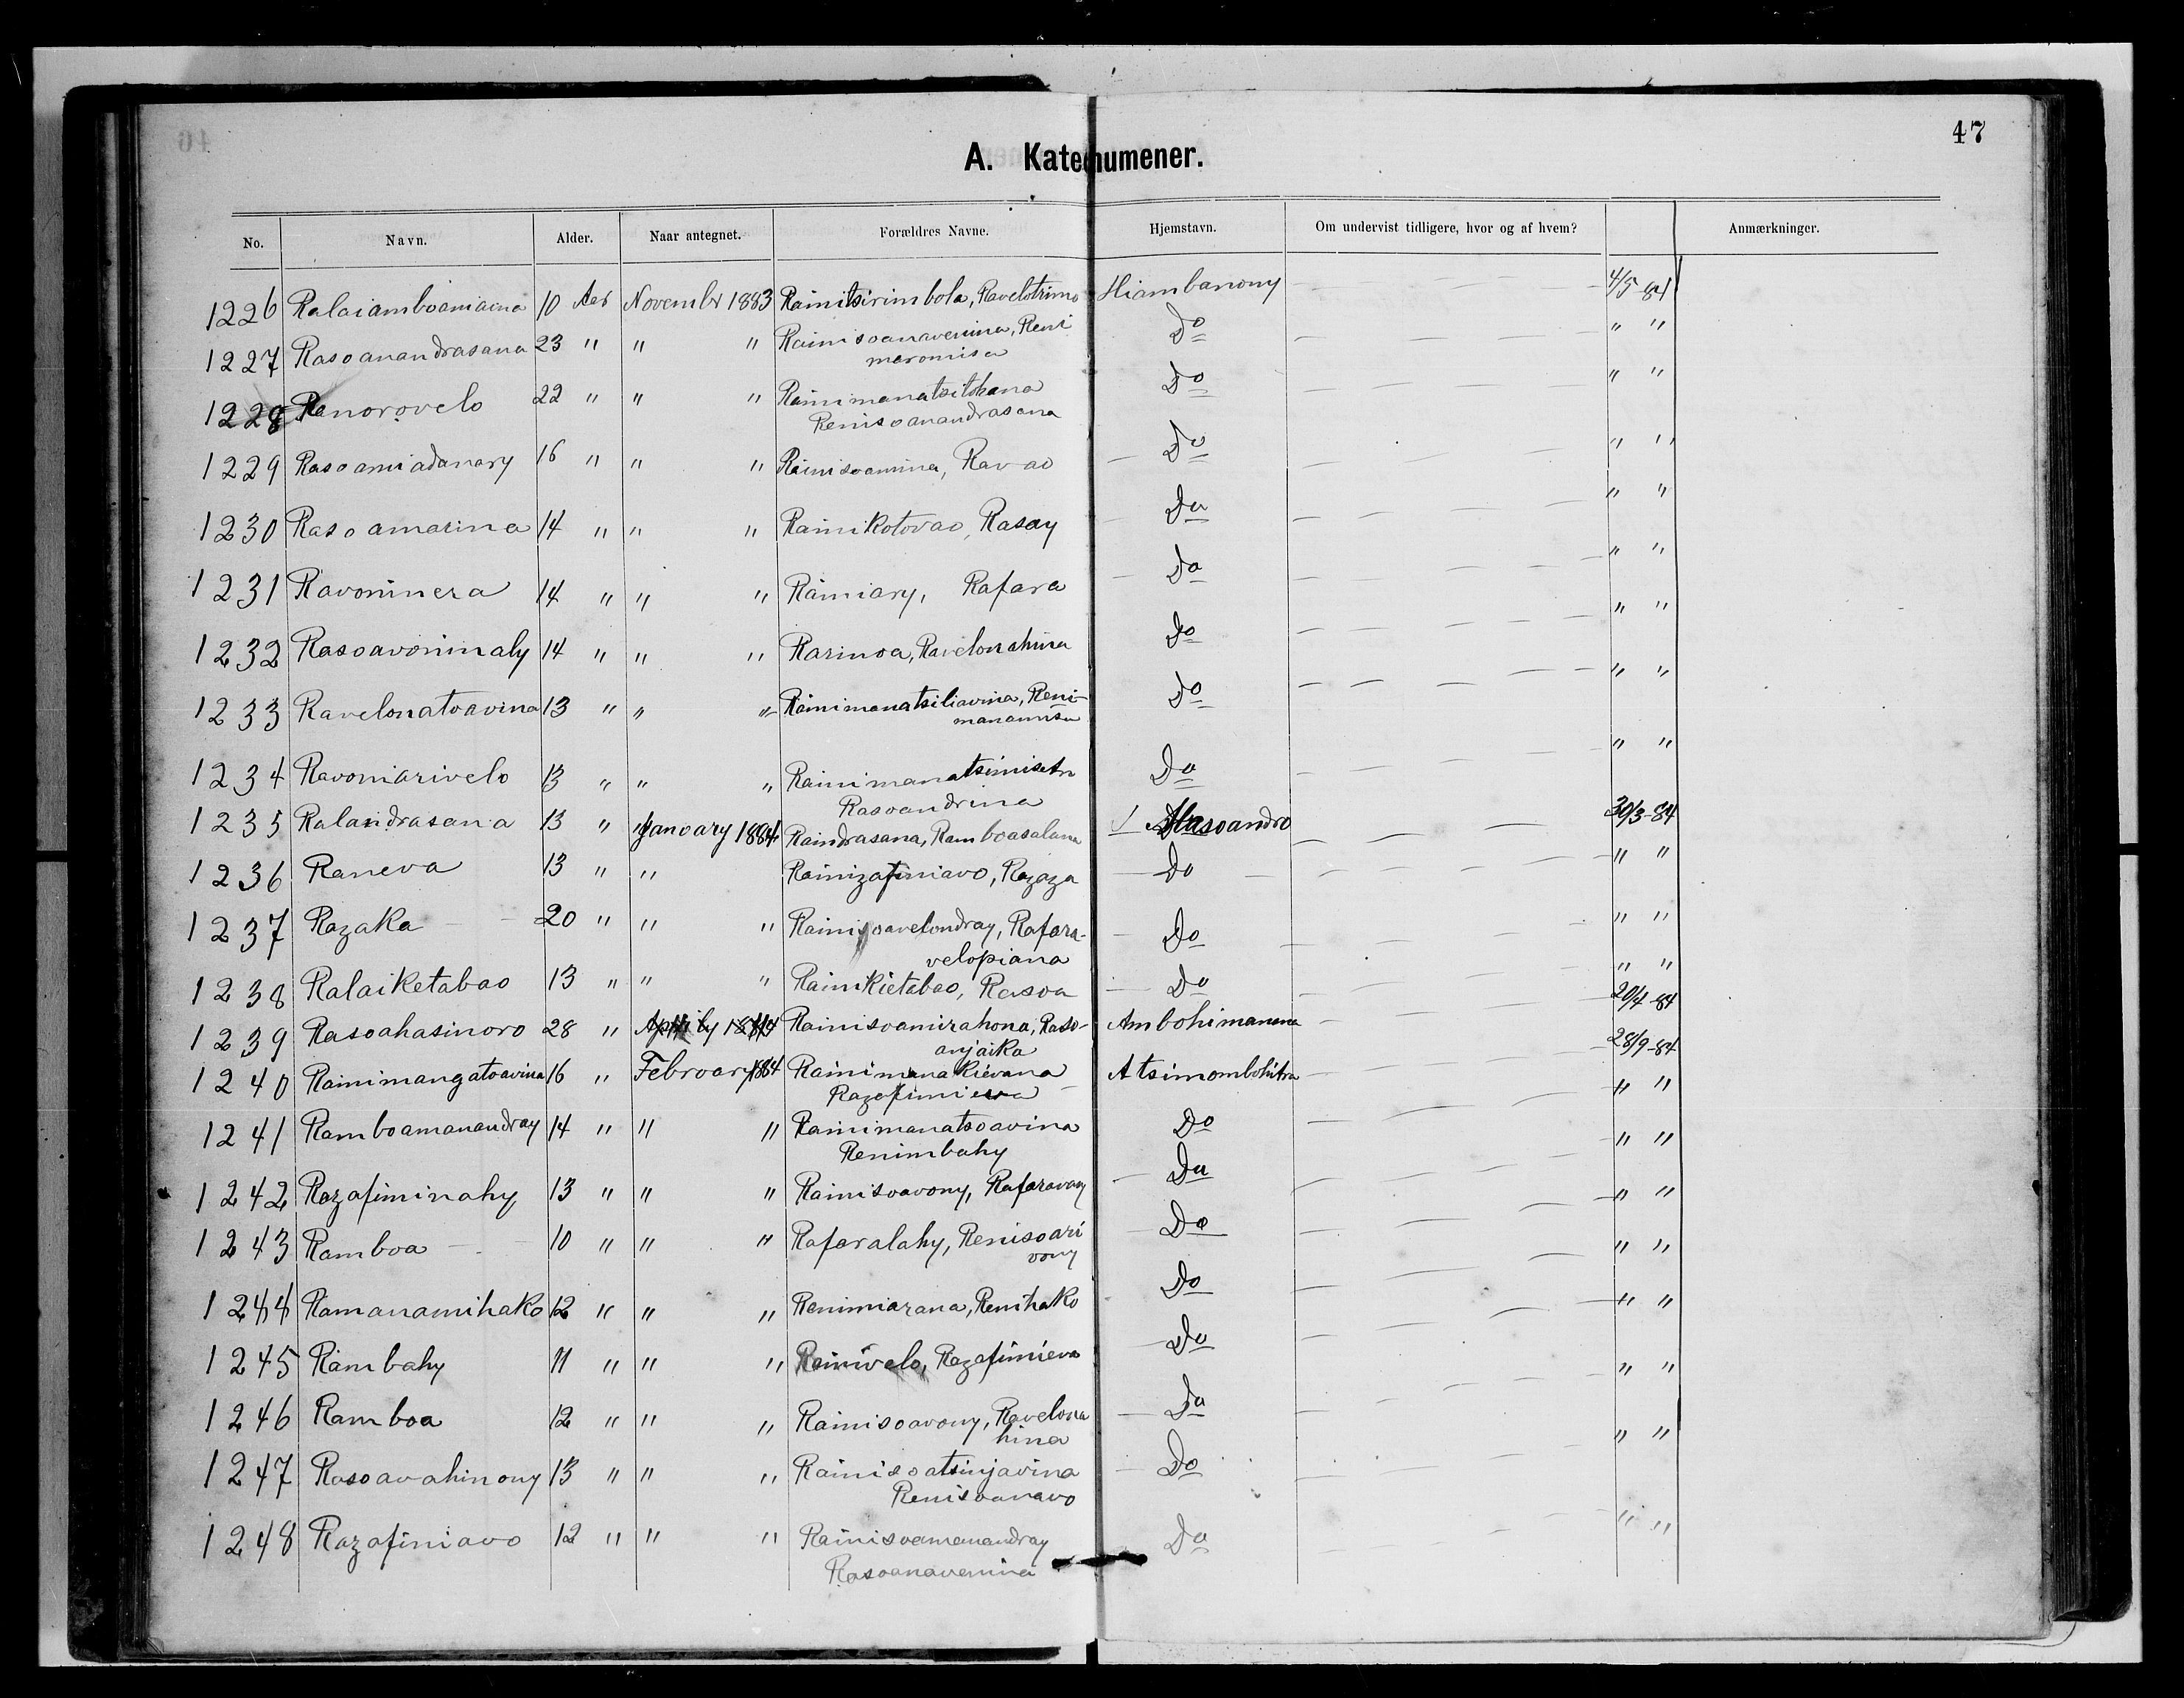 47
A. Katechumener.
No. Navn. Alder. Naar antegnet. Forældres Navne. Hjemstavn. Om undervist tidligere, hvor og af hvem? Anmærkninger.
1226 Ralaiamboamiaina 10 Aar Novembr 1883 Rainitsirimbola, Ravelotrimo Hiambanony 4/5-84
1227 Rasoanandrasana 23 " " " Rainisoanavenina, Reni Do " "
maromisa
1228 Renorovelo 22 " " " Rainimanatsitohana Do " "
Renisoanandrasana
1229 Rasoamiadanary 16 " " " Rainisoamina, Ravao Do " "
1230 Rasoamarina 14 " " " Rainikotovao, Rasay Do " "
1231 Ravoninera 14 " " " Rainiary, Rafara Do " "
1232 Rasoavonimaly 14 " " " Rarinoa, Ravelonahina Do " "
1233 Ravelonatoavina 13 " " " Rainimanatsiliavina, Reni- Do " "
manamisa
1234 Ravoniarivelo 13 " " " Rainimanatsimisetra Do " "
Rasoandrina
1235 Ralaindrasana 13 " " January 1884 Raindrasana, Ramboasalama Masoandro 30/3-84
1236 Raneva 13 " " Rainizafiniavo, Razaza Do " "
1237 Razaka 20 " " " Rainisoavelondray, Rafara- Do " "
velopiana
1238 Ralaiketabao 13 " " " Rainikietabao, Rasoa Do " "
1239 Rasoahasinoro 28 " Rainisoamirahona, Raso- Ambohimanana 20/4-84
anjaika
1240 Rainimangatoavina 16 " Februar 1884 Rainimanakiévana Atsimombohitra 28/9-84
Razafimieva " "
1241 Ramboamanandray 14 " " " Rainimanatsoavina Do
Renimbahy " "
1242 Razafiminahy 13 " " " Rainisoavony, Rafaravavy Do " "
1243 Ramboa 10 " " " Rafaralahy, Renisoari Do " "
vony
1244 Ramanamihako 12 " " " Renimiarana, Renihako Do " "
1245 Rambahy 11 " " " Rainivelo, Razafimieva Do " "
1246 Ramboa 12 " " " Rainisoavony, Ravelona Do " "
hina
1247 Rasoavahinony 13 " " " Rainisoatsinjavina Do
Renisoanavo
1248 Razafiniavo 12 " " " Rainisoamanandray Do " "
Rasoanavenina